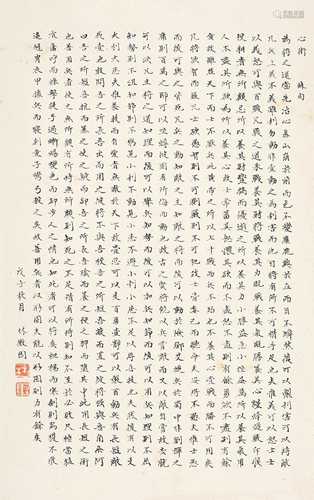 心術　蘇洵
為將之道當先治心泰山崩於前而色不變麋鹿興於左而目不瞬然後可以制利害可以待敵
凡兵上義不義雖利勿動非一動之為利害而他日將有所不可措手足也夫惟義可以怒士士
以義怒可與百戰凡戰之道未戰養其財將戰養其力既戰養其氣既勝養其心謹烽燧嚴斥堠使
耕者無所顧忌所以養其財豐犒而優游之所以養其力小勝益急小挫益厲所以養其氣用
人不盡其所欲為所以養其心故士常蓄其怒懷其欲而不盡怒不盡則有餘勇欲不盡則有餘
貪故雖并天下而士不厭兵此黃帝之所以七十戰而兵不殆也不養其心一戰而勝不可用
矣凡將欲智而嚴凡士欲愚智則不可測嚴則不可犯故士皆委己而聽命夫安得不愚夫惟士愚
而後可與之皆死凡兵之動知敵之主知敵之將而後可以動於險鄧艾縋兵於蜀中非劉禪之
庸則百萬之師可以坐縛彼固有所侮而動也故古之賢將能以兵嘗敵而又以敵自嘗故去就
可以決凡主將之道知理而後可以舉兵知勢而後可以加兵知節而後可以用兵知理則不屈
知勢則不沮知節則不窮見小利不動見小患不避小利小患不足以辱吾技也夫然後有以支
大利大患夫惟養技而自愛者無敵於天下故一忍可以支百勇一靜可以制百動兵有長短敵
我一也敢問吾之所長吾出而用之彼將不與吾校吾之所短吾蔽而置之彼將強與吾角奈何
曰吾之所短吾抗而暴之使之疑而卻吾之所長吾陰而養之使之狎而墮其中此用長短之術
也善用兵者使之無所顧有所恃無所顧則知死之不足惜有所恃則知不至於必敗尺箠當猛
虎奮呼而操擊徒手遇蜥蜴變色而卻步人之情也知此者可以將矣袒裼而案劍則烏獲不敢
逼冠冑衣甲據兵而寢則童子彎弓殺之矣故善用兵者以形固夫能以形固則力有餘矣
戊子秋月